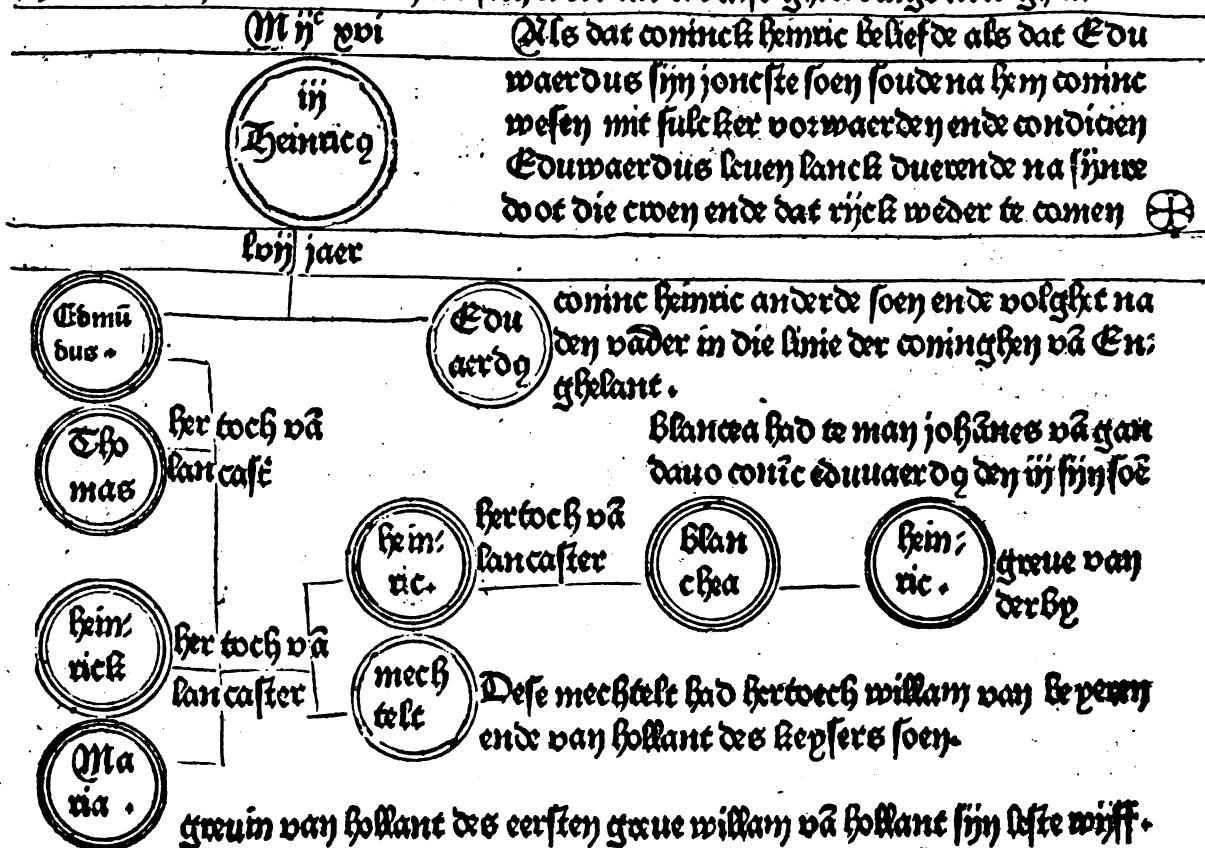 Mijᶜ xvi
Als dat coninck heinric beliefde als dat Edu
waerdus sijn joncste soen soude na hem coninc
wesen mit sulcker vorwaerden ende condicien
Eduwaerdus leuen lanck duerende na sijnre
doot die croen ende dat rijck weder te comen
iij
Heinricꝯ
lvij jaer
Edmū
dus.
Edu
aerdꝯ
coninc heinric anderde soen ende volghet na
den vader in die linie der coninghen vā En:
ghelant.
Tho
mas
her toch vā
lan cast̄
blancea had te man johānes vā gan
dauo conīc eduuaerdꝯ den iij sijn soē
hein:
ric.
hertoch vā
lancaster
blan
chea
hein:
ric.
greue van
derby
hein:
rick
her toch vā
lancaster
mech
telt
Dese mechtelt had hertoech willam van beyeren
ende van hollant des keysers soen.
Ma
ria.
greuin van hollant des eersten greue willam vā hollant sijn leste wijff.